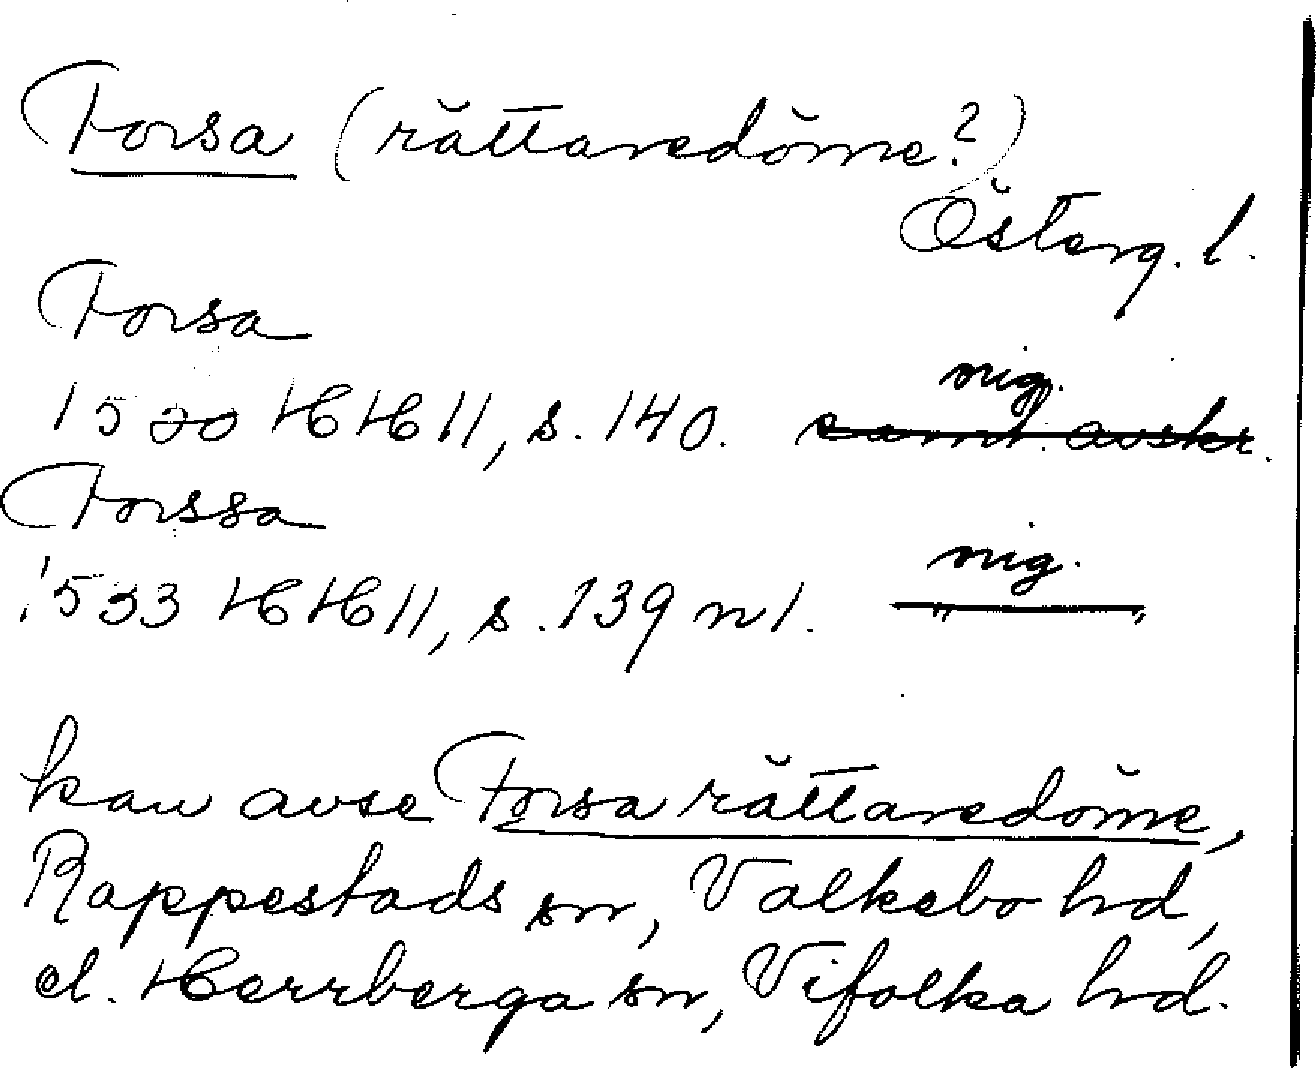 Forsa (rättaredöme?)
Österg. l.
Forsa
nig.
1530 HH 11, s. 140. samt. avskr.
Forssa
nig.
1533 HH 11, s. 139 n 1. — " —
kan avse Forsa rättaredöme,
Rappestads sn, Valkebo hrd,
el. Herrberga sn, Vifolka hrd.